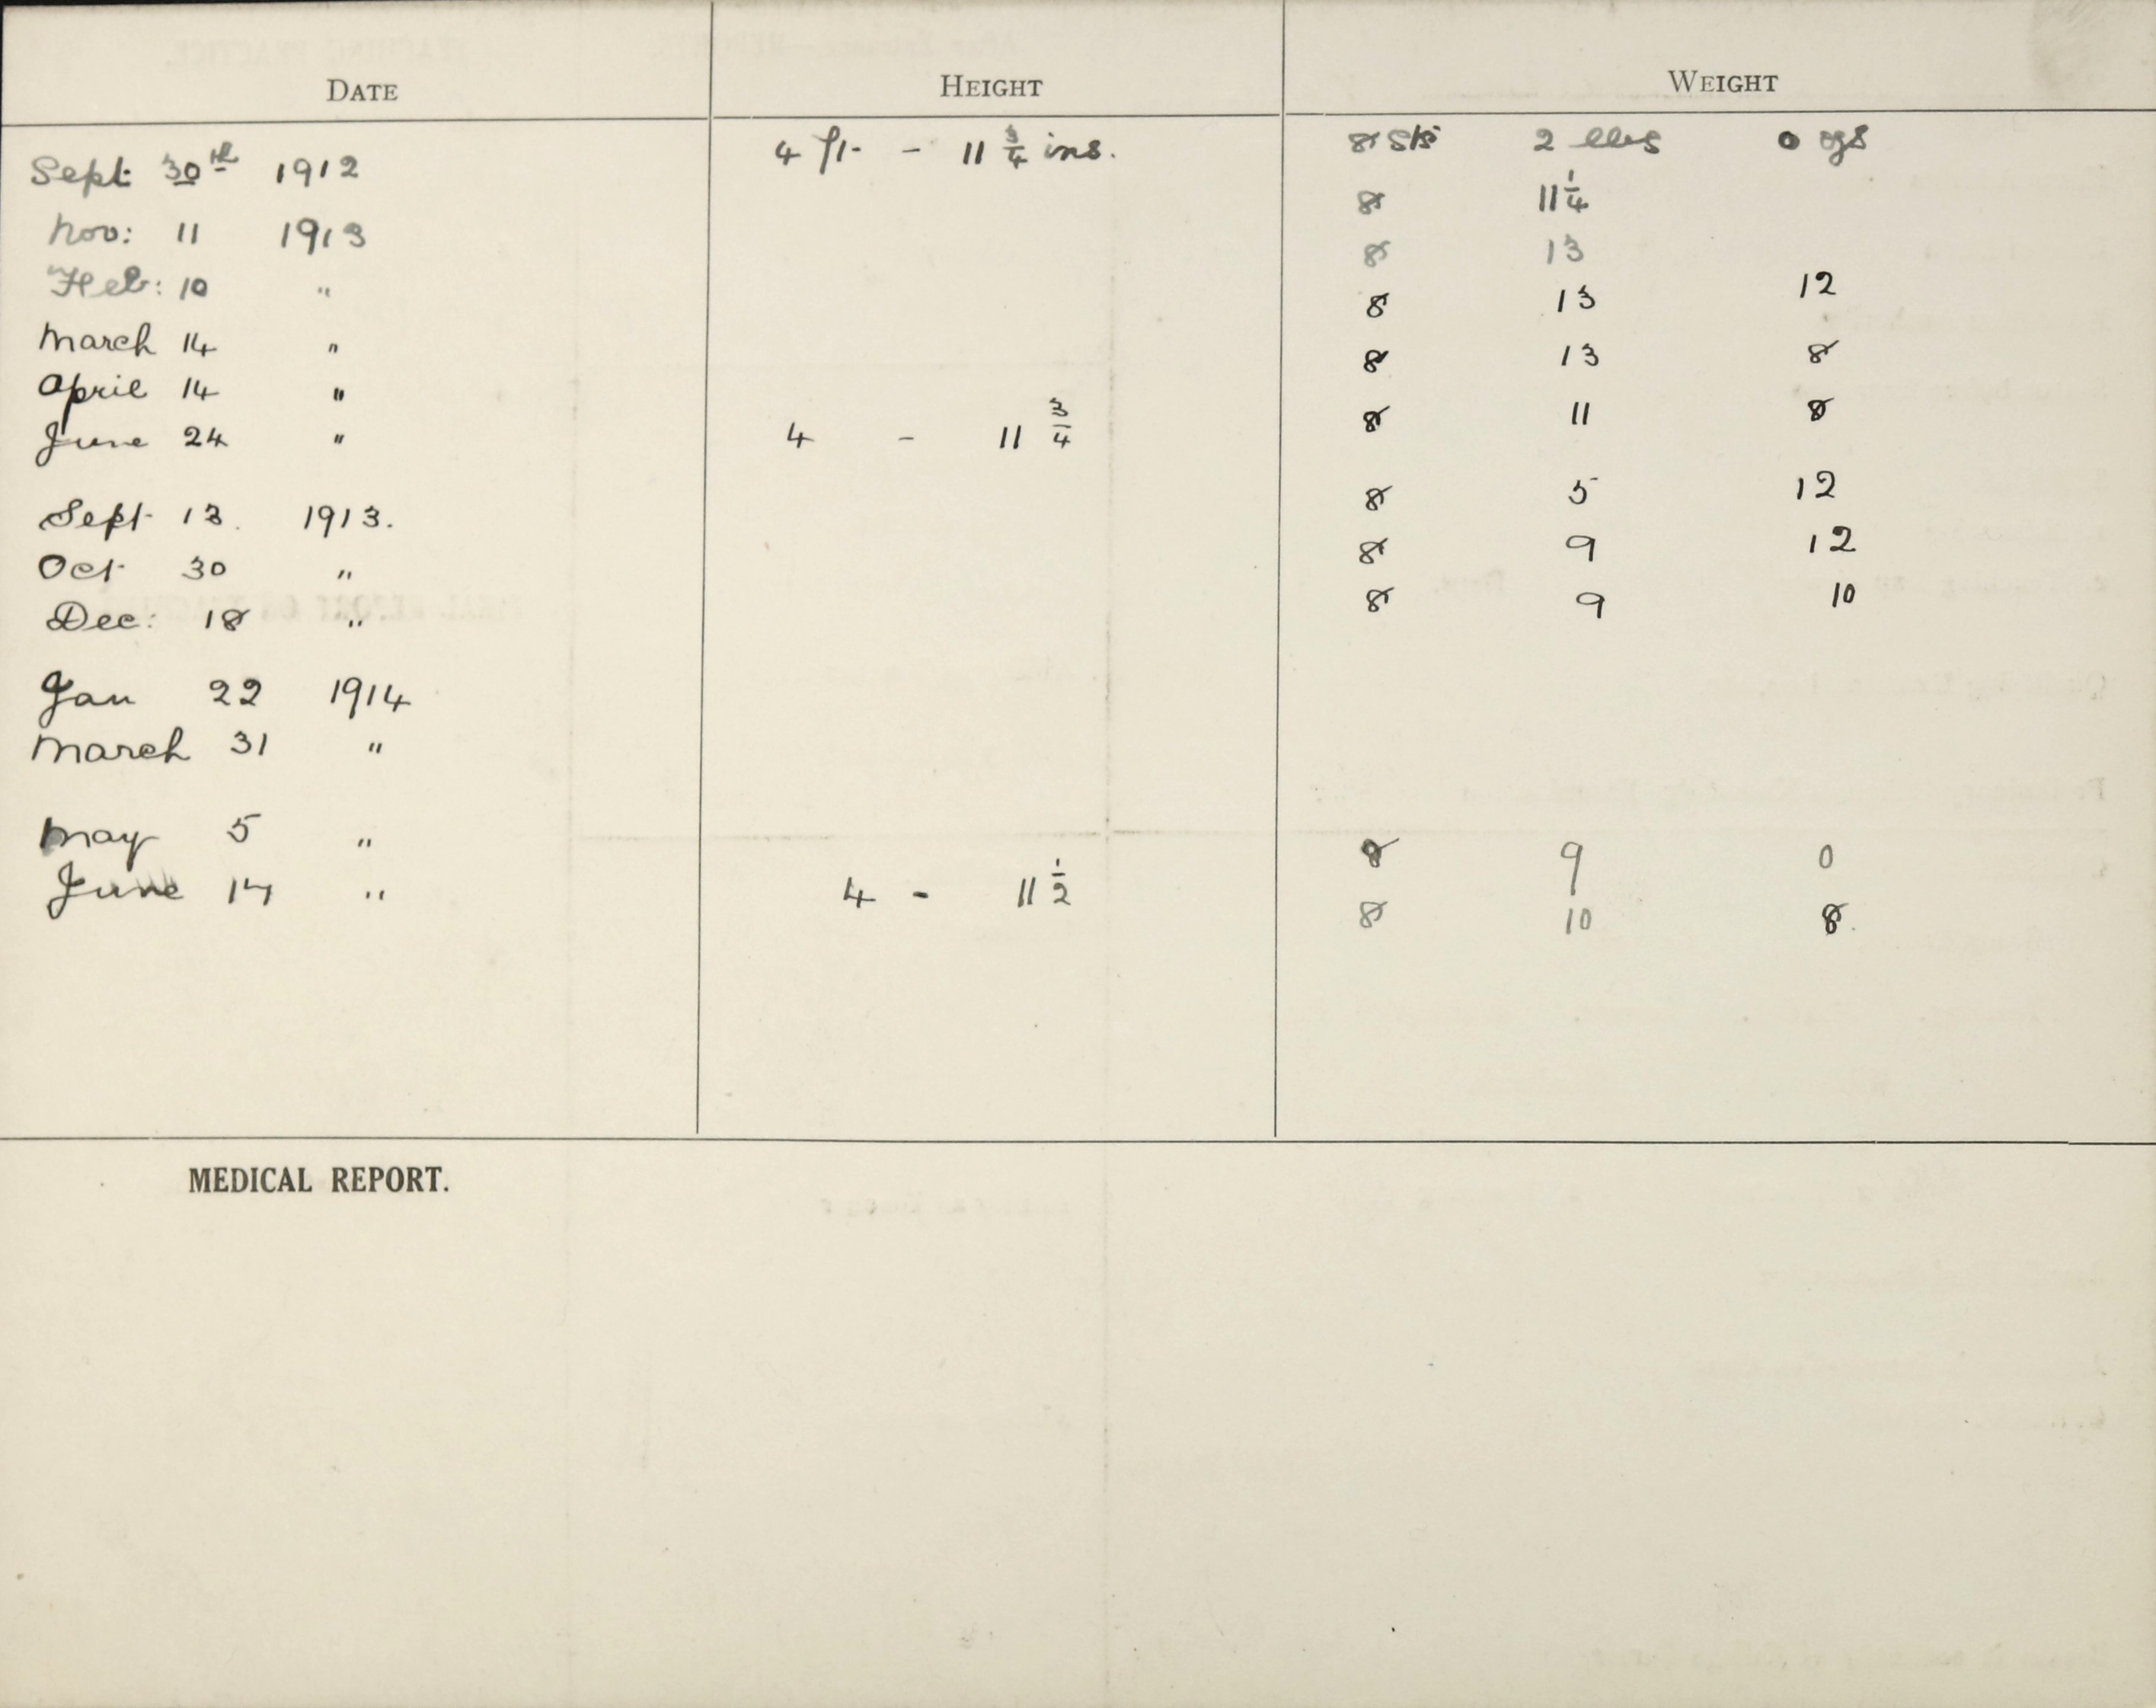 DATE HEIGHT WEIGHT
Sept: 30th 1912 4 ft - 11 3/4 ins. 8 sts 2 lbs 0 ozs
Nov: 11 1913 8 11 1/4
Feb: 10 " 8 13
March 14 " 8 13 12
April 14 " 8 13 8
June 24 " 4 - 11 3/4 8 11 8
Sept. 13. 1913. 8 5 12
Oct. 30 " 8 9 12
Dec: 18 " 8 9 10
Jan 22 1914
March 31 "
May 5 " 8 9 0
June 14 " 4 - 11 1/2 8 10 8.
MEDICAL REPORT.